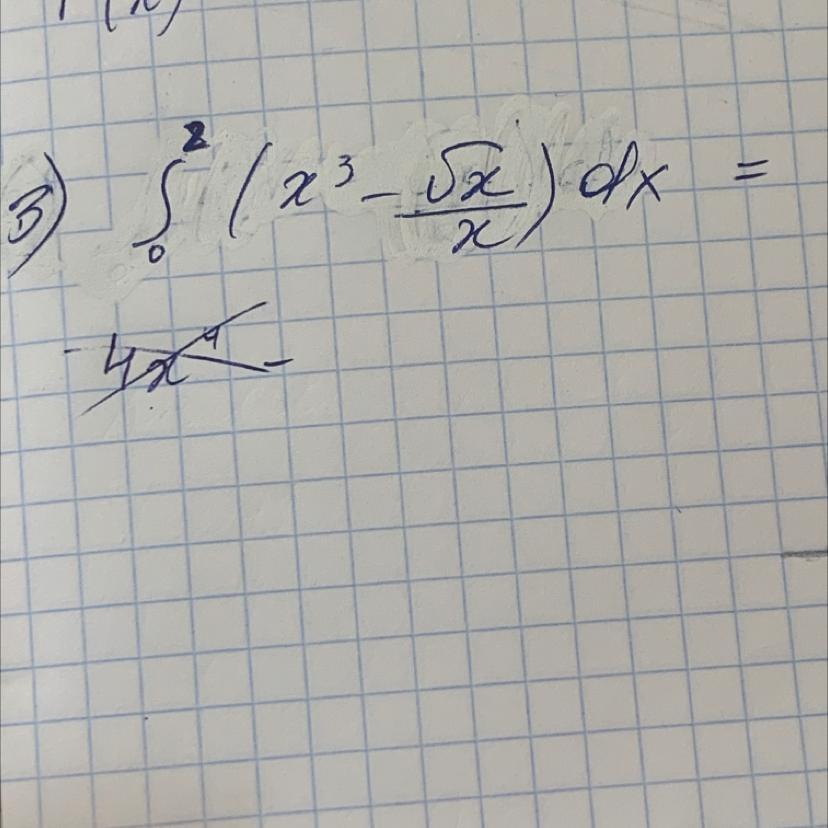 3) ∫₀² (x³ - √x/x) dx =
4x⁴ -